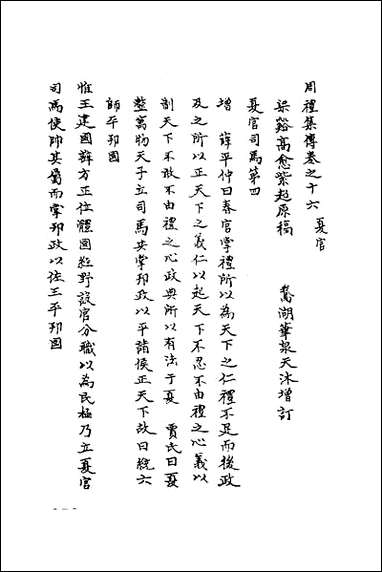 周禮集傳卷之十六 夏官
梁谿高愈紫起原稿 鵞湖華泉天沐增訂
夏官司馬第四
增 薛平仲曰春官掌禮所以為天下之仁禮不足而後政
及之所以正天下之義仁以起天下不忍不由禮之心義以
制天下不敢不由禮之心政典所以有法于夏 賈氏曰夏
整萬物天子立司馬共掌邦政以平諸侯正天下故曰統六
師平邦國
惟王建國辨方正位體國經野設官分職以為民極乃立夏官
司馬使帥其屬而掌邦政以佐王平邦國